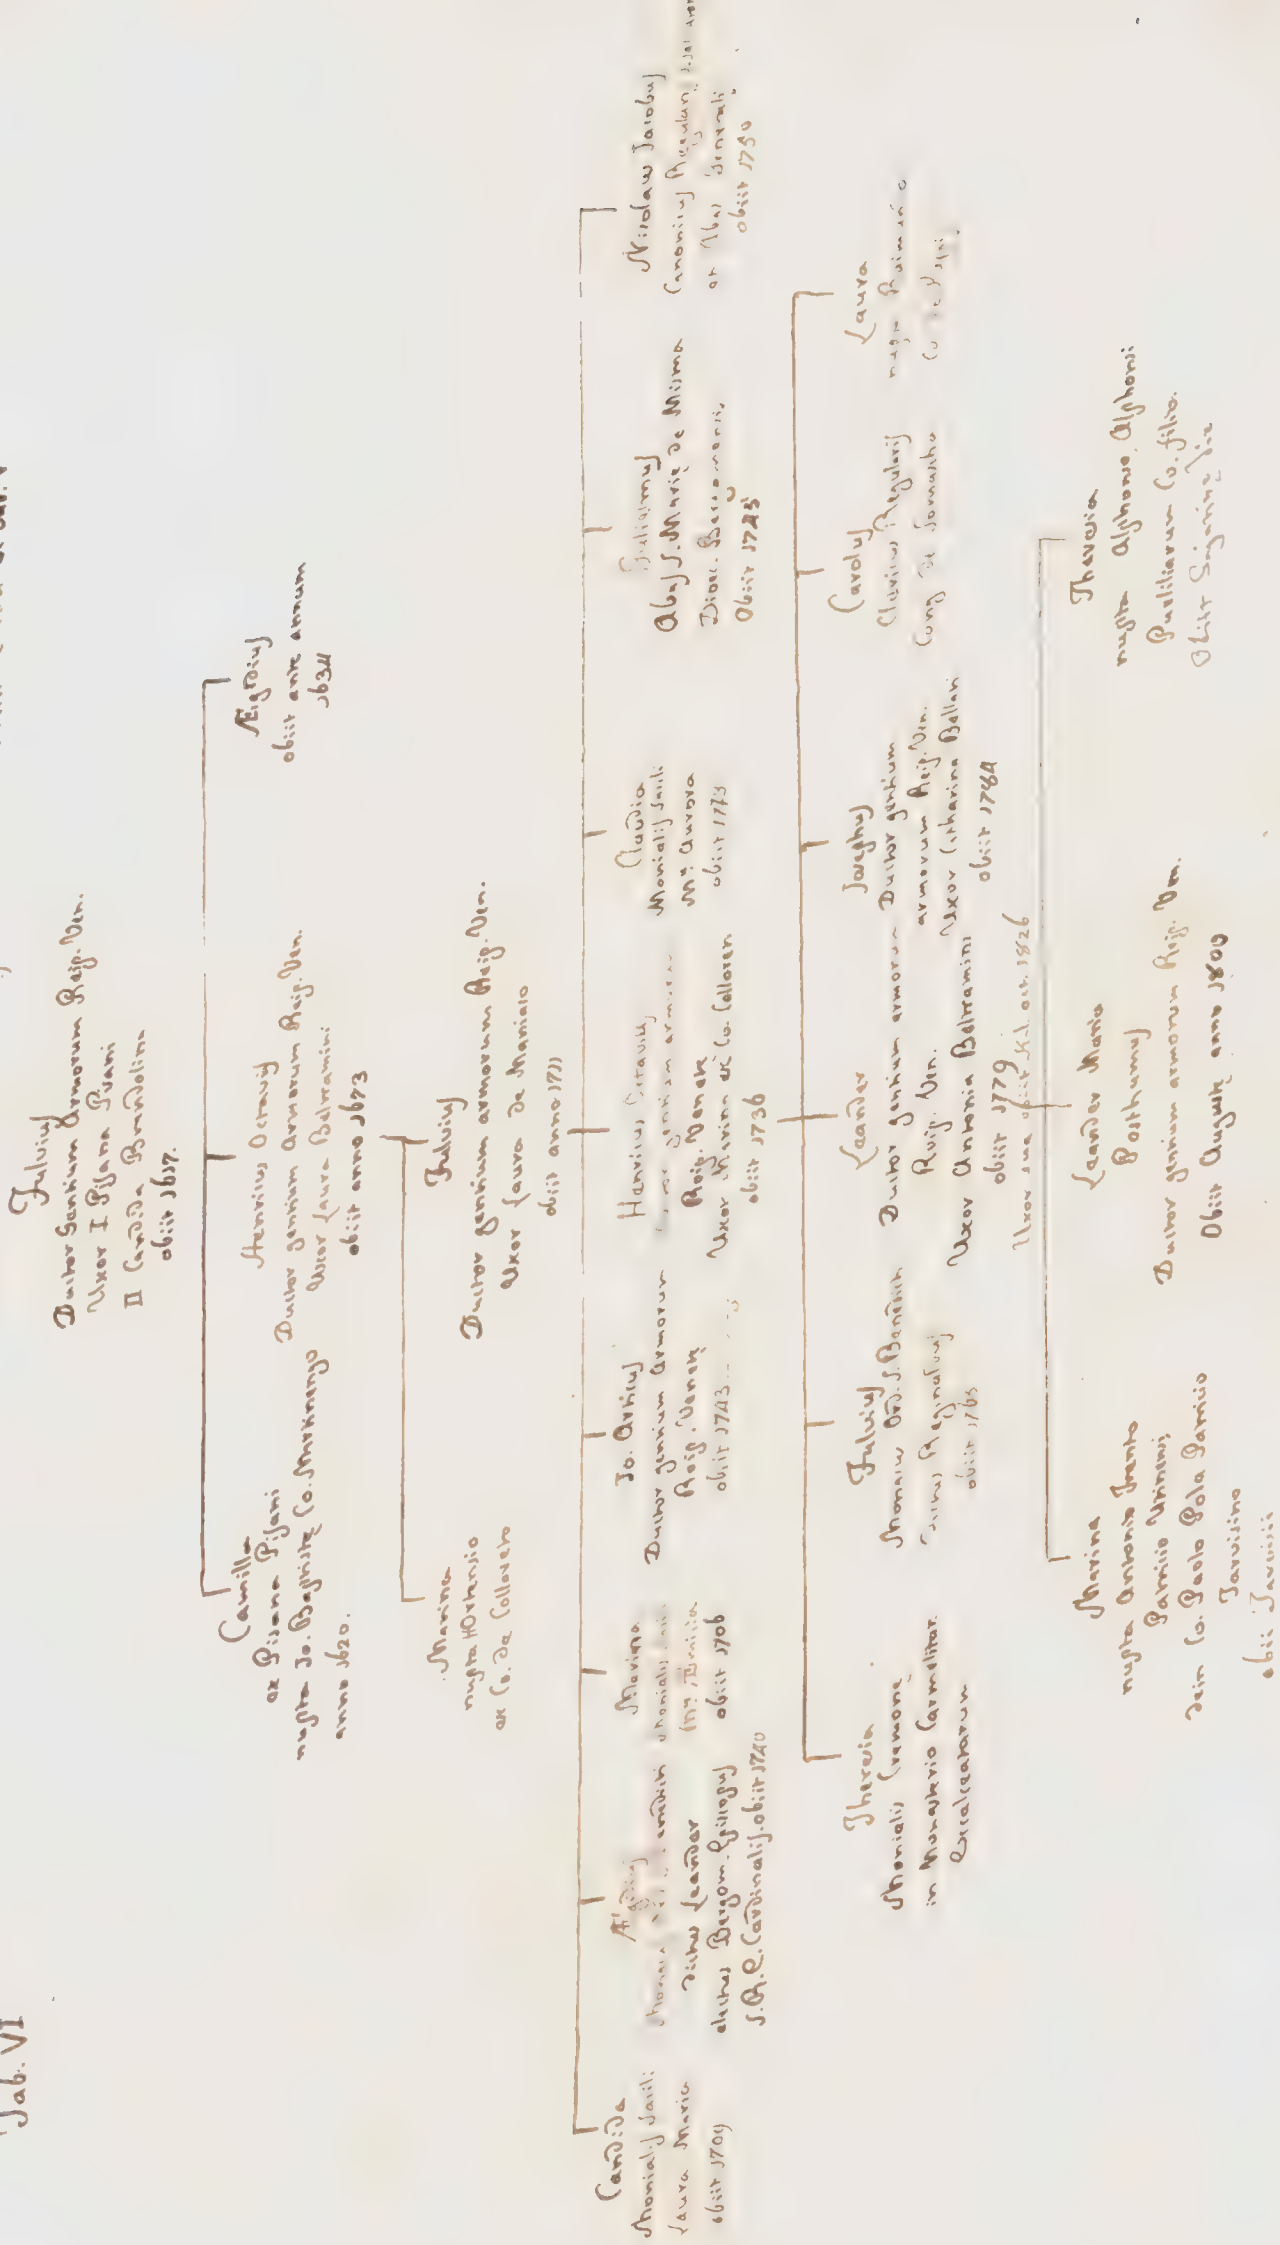 Tab. VI
Fulvius
Ductor Gentium Armorum Reip. Ven.
Uxor I Pisana Pisani
II Candida Brandolina
obiit 1617.
Camilla
ex Pisana Pisani
nupta Jo. Baptistę Co. Martinengo
anno 1620.
Henricus Octavius
Ductor gentium Armorum Reip. Ven.
Uxor Laura Beltramini
obiit anno 1673
Ægidius
obiit ante annum
1634
Marina
nupta Hortensio
ex Co. de Colloveto
Fulvius
Ductor gentium armorum Reip. Ven.
Uxor Laura de Maniaco
obiit anno 1711
Candida
Monialis
Laura Maria
obiit 1709
Ægidius
dictus Leander
electus Bergom. Episcopus
S.R.E. Cardinalis. obiit 1740
Marina
obiit 1706
Jo. Articus
Ductor gentium Armorum
Reip. Venetę
obiit 1743
Henricus
Reip. Venetę
Uxor Marina ex Co. Colloreti
obiit 1736
Claudia
Monialis
Mª Aurora
obiit 1773
Julianus
Abas S. Marię de Misma
Dioec. Bergomensis
Obiit 1745
Nicolaus Jacobus
Canonicus
obiit 1750
Theresia
Monialis Cremonę
in Monasterio Carmelitar.
Excalceatarum
Fulvius
Monacus Ord. S. Benedicti
dictus Reginaldus
obiit 1765
Leander
Ductor gentium armorum
Reip. Ven.
Uxor Antonia Beltramini
obiit 1779
Uxor sua obiit Kal. oct. 1826
Josephus
Ductor gentium
armorum Reip. Ven.
Uxor Catharina Bellati
obiit 1784
Carolus
Clericus Regularis
Cong. de Somascha
Laura
nupta
Marina
nupta Antonio Trento
Patricio Utinensi
dein Co. Paolo Pola Patricio
Tarvisino
obii Tarvisii
Leander Maria
Posthumus
Ductor gentium armorum Reip. Ven.
Obiit Augusti anno 1800
Theresia
nupta Alphonso, Alphonsi
Purliliarum Co. filio.
Obiit